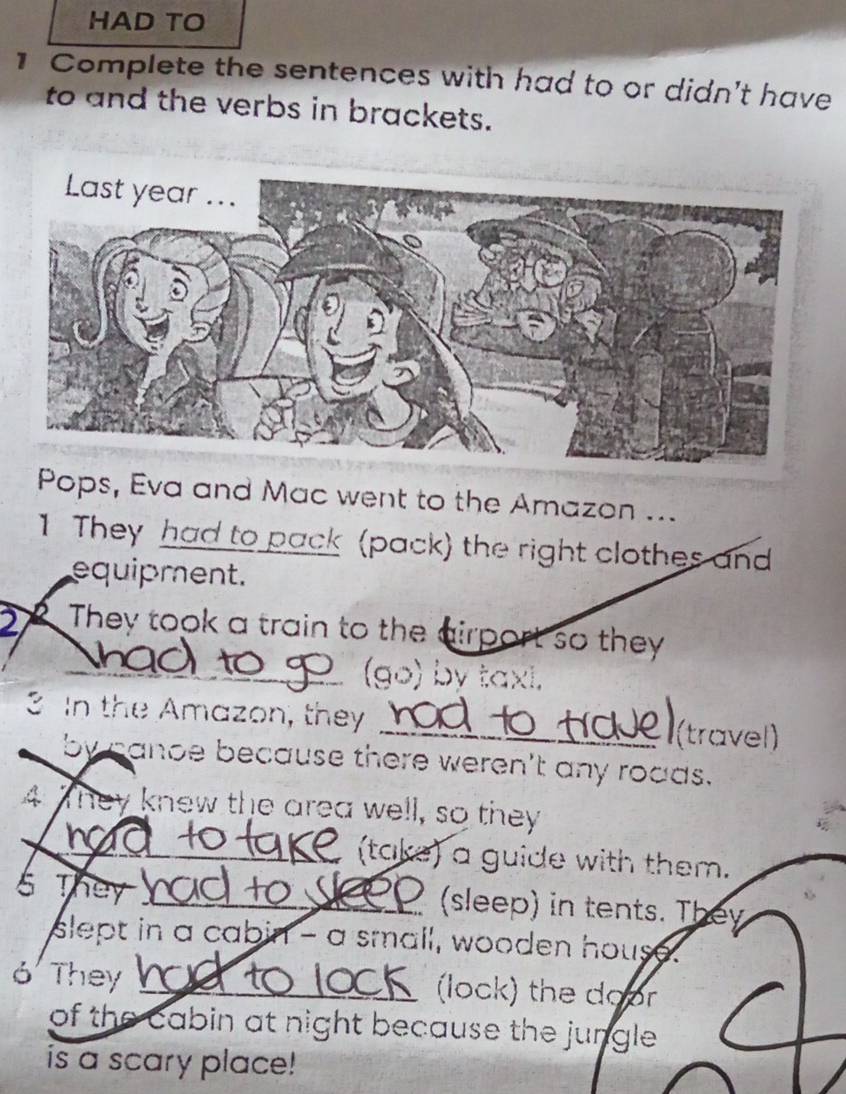 HAD TO
1 Complete the sentences with had to or didn't have
to and the verbs in brackets.
Last year ...
Pops, Eva and Mac went to the Amazon ...
1 They had to pack (pack) the right clothes and
equipment.
2 2 They took a train to the airport so they
had to go (go) by taxi.
3 In the Amazon, they had to travel (travel)
by canoe because there weren't any roads.
4 They knew the area well, so they
had to take (take) a guide with them.
5 They had to sleep (sleep) in tents. They
slept in a cabin – a small, wooden house.
6 They had to lock (lock) the door
of the cabin at night because the jungle
is a scary place!